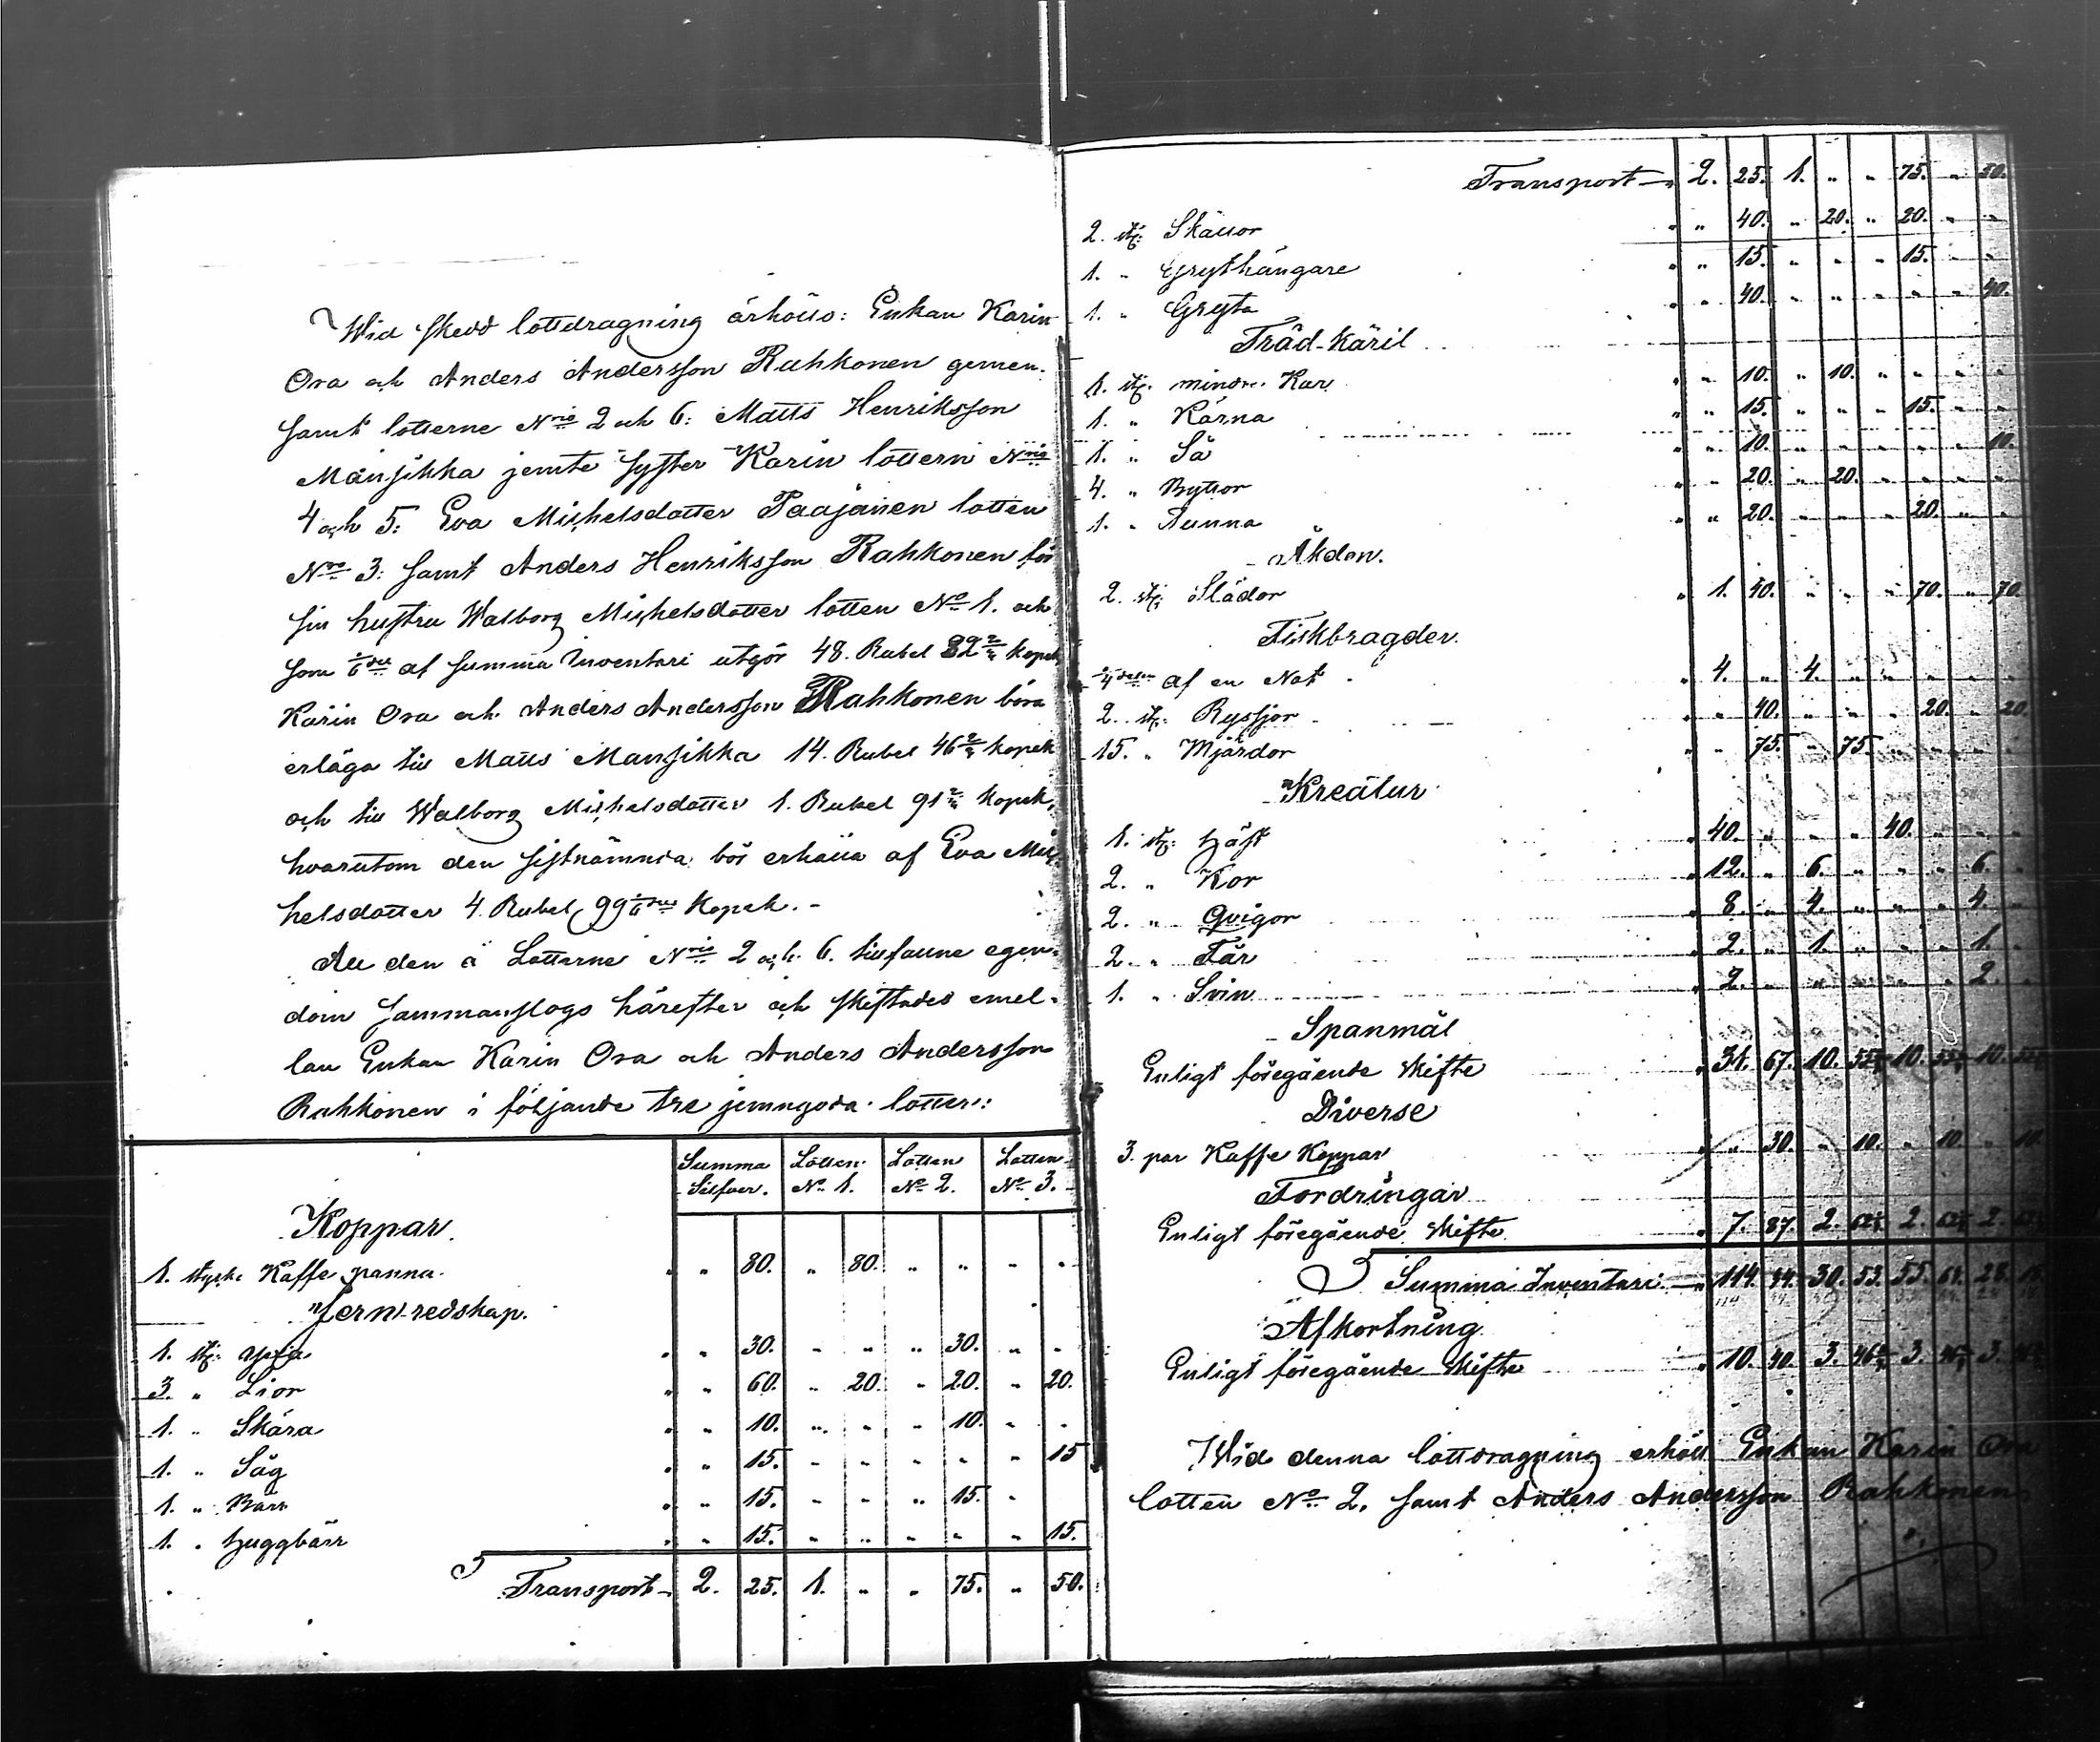 Wid skedd lottdragning ärhöllo: Enkan Karin
Ora och Anders Andersson Rahkonen gemen-
samt lotterne N:ris 2 och 6: Matts Henriksson
Mansikka jemte syster Karin lottern N:ris
4 och 5: Eva Michelsdotter Paajanen lotten
N:ro 3: samt Anders Henriksson Rahkonen för
sin hustru Walborg Michelsdotter lotten N:o 1. och
som af summa Inventari utgör 48. Rubel kopek
Karin Ora och Anders Andersson Rahkonen böra
erläga till Matts Mansikka 14. Rubel 46 2/4 kopek
och till Walborg Michelsdotter 1. Rubel 91 2/4 kopek,
hvarutom den sistnämnda bör erhålla af Eva Mic-
helsdotter 4. Rubel 99 kopek. -
All den å Lotterne N:ris 2 och 6. tillfallne egen-
dom sammanslogs härefter och skiftades emel-
lan Enkan Karin Ora och Anders Andersson
Rahkonen i följande tre jemngoda lotter:
Summa Silfver. Lotten N:o 1. Lotten N:o 2. Lotten N:o 3.
Koppar.
1. stycke Kaffe panna " " 80. " 80. " " " "
Jern-redskap.
1. st: " " 30. " " " 30. " "
3. " Lior " " 60. " 20. " 20. " 20.
1. " Skära " " 10. " " " 10. " "
1. " Såg " " 15. " " " " " 15
1. " Barr " " 15. " " " 15. "
1. " huggbärr " " 15. " " " " " 15.
Transport 2. 25. 1. " " 75. " 50.
Transport " 2. 25. 1. " " 75. " 50.
2. st: Skällor " " 40. " 20. " 20. " "
1. " Grythängare " " 15. " " " 15. " "
1. " Gryta " " 40. " " " " " 40.
Träd-Käril
1. st: mindre Kar " " 10. " 10. " " " "
1. " Kärna " " 15. " " " 15. " "
1. " Så " " 10. " " " " " 10.
4. " Byttor " " 20. " 20. " " " "
1. " Tunna " " 20. " " " 20. " "
Åkdon.
2. st: Slädor " 1. 40. " " " 70. " 70.
Fiskbragder.
af en Not " 4. " 4. " " " " "
2. st: Ryssjor " " 40. " " " 20. " 20.
15. " Mjärdor " " 75. " 75. " " " "
Kreatur
1. st: häst " 40. " " " 40. " " "
2. " Kor " 12. " 6. " " " 6. "
2. " Qvigor " 8. " 4. " " " 4. "
2. " Får " 2. " 1. " " " 1. "
1. " Svin " 2. " " " " " 2. "
Spanmål
Enligt föregående skifte " 31. 67. 10. 10. 10.
Diverse
3. par Kaffe Koppar " " 30. " 10. " 10. " 10
Fordringar
Enligt föregående skifte " 7. 87. 2. 2. 2.
Summa Inventari " 114. 44. 30. 53. 55. 28.
Afkortning
Enligt föregående skifte " 10. 40. 3. 3. 3.
Wid denna lottdragning erhöll Enkan Karin Ora
lotten N:o 2. samt Anders Andersson Rahkonen